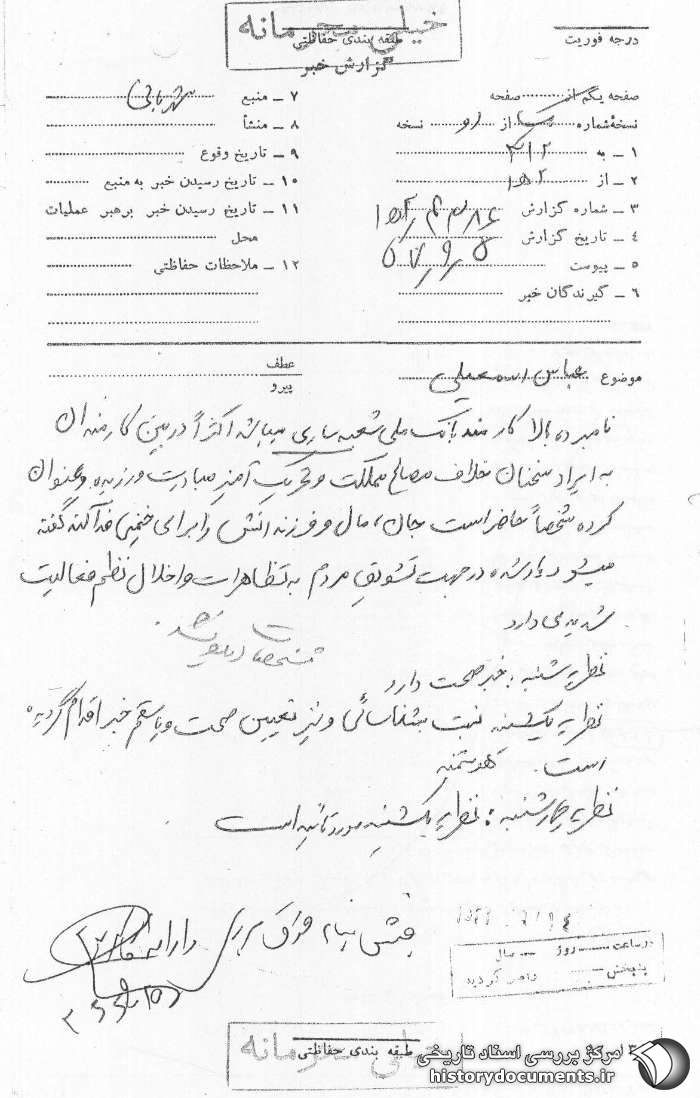 خیلی محرمانه
طبقه بندی حفاظتی
گزارش خبر
درجه فوریت
صفحه یکم از صفحه
نسخهٔ شماره از نسخه
۱ ــ به ۳۱۲
۲ ــ از
۳ ــ شماره گزارش
۴ ــ تاریخ گزارش
۵ ــ پیوست
۶ ــ گیرندگان خبر
۷ ــ منبع شهربانی
۸ ــ منشأ
۹ ــ تاریخ وقوع
۱۰ ــ تاریخ رسیدن خبر به منبع
۱۱ ــ تاریخ رسیدن خبر برهبر عملیات
محل
۱۲ ــ ملاحظات حفاظتی
موضوع عباس اسمعیلی
عطف
پیرو
نامبرده بالا کارمند بانک ملی شعبه ساری میباشد اکثراً در بین کارمندان
به ایراد سخنان خلاف مصالح مملکت و تحریک آمیز مبادرت ورزیده و عنوان
کرده شخصاً حاضر است جان، مال و فرزندانش را برای خمینی فدا کند گفته
میشود نامبرده در جهت تشویق مردم به تظاهرات و اخلال نظم فعالیت
شدیدی دارد.
نظریه شنبه : خبر صحت دارد
نظریه یکشنبه نسبت بشناسائی و نیز تعیین صحت و یا سقم خبر اقدام گردیده
است.
نظریه چهارشنبه : نظریه یکشنبه مورد تائید است
در ساعت روز سال
بخش واصل گردید
خیلی محرمانه
طبقه بندی حفاظتی
مرکز بررسی اسناد تاریخی
historydocuments.ir